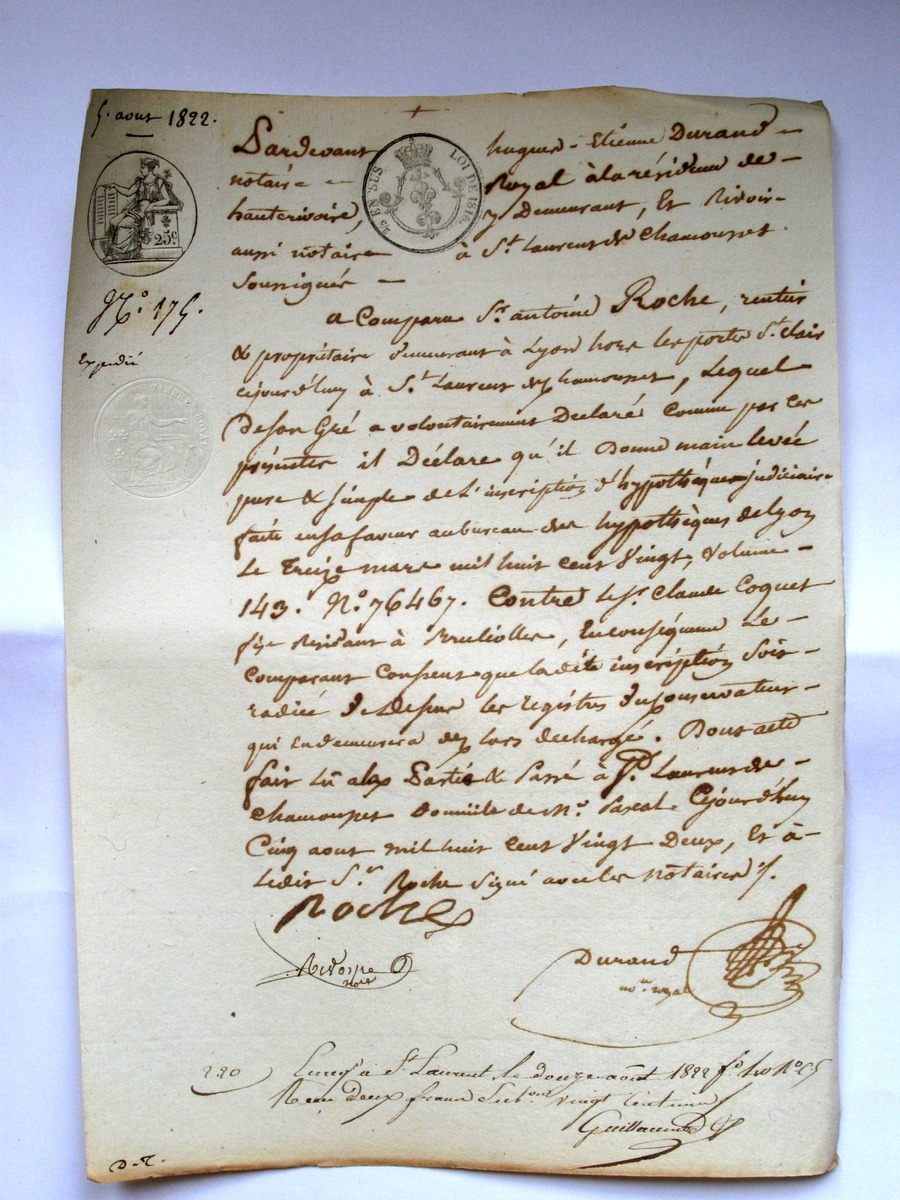 5. aout 1822.
Pardevant hugues-Etienne Durand
notaire Royal à la résidence de
hauterivoire, y Demeurant, Et Rivoire
aussi notaire à St. Laurent de Chamousset
Soussignés
25 EN SUS LOI DE 1816.
25c.
No. 175.
Expédié
TIMBRE ROYAL
a Comparu Sr. antoine Roche, rentier
& propriétaire demeurant à Lyon hors les portes St. Clair
cejourd'huy à St. Laurent de Chamousset, Lequel
De son Gré a volontairement Déclaré comme par ces
présentes il Déclare qu'il Donne main levée
pure & simple de L'inscription d'hypothèque judiciaire
faite en sa faveur au bureau des hypothèques de Lyon
Le Treize mars mil huit cent Vingt, Volume
143. No. 76467. Contre le Sr. Claude Coquet
fils Résidant à Brullioles, En conséquence Le
comparant Consent que la dite inscription Soit
radiée de Dessus les registres du conservateur
qui en demeurera dez lors déchargé. Dont acte
fait Lû aux Parties & Passé à St. Laurent de
Chamousset Domicile de Me. Pascal Cejourd'huy
Cinq aout mil huit cent Vingt Deux, Et à
Ledit Sr. Roche Signé avec les notaires ./.
Roche
Rivoire
notre
Durand
nore. royal
2.20 Enregé. à St. Laurent le douze août 1822 fo.
Reçu deux francs Subon. vingt centimes
Guillaumod
D.-T.